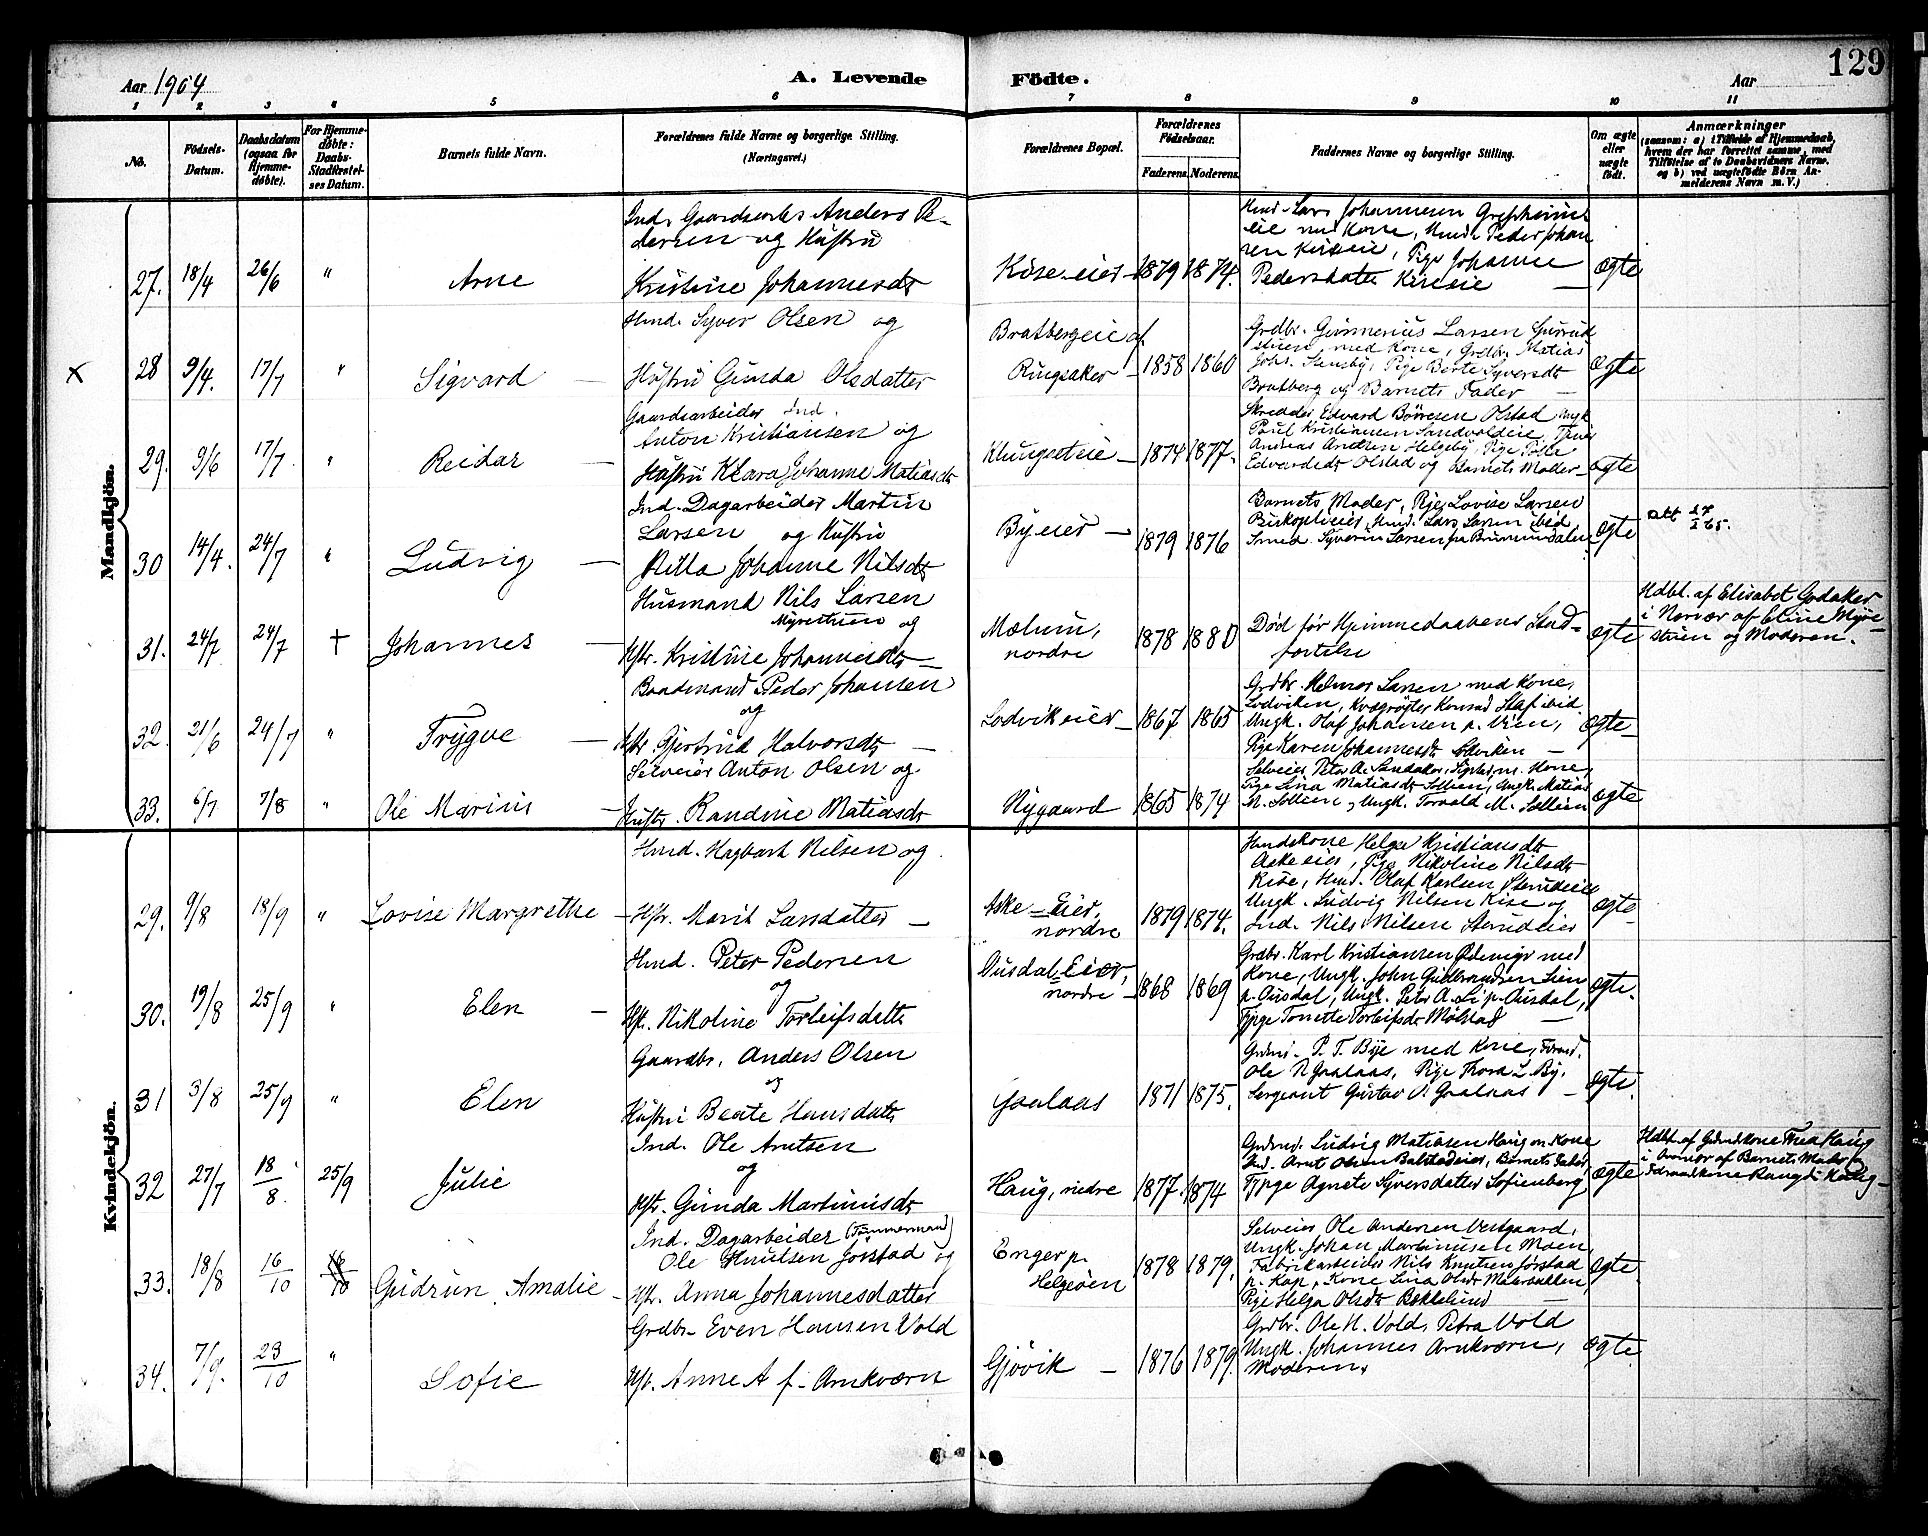 129
Aar 1904
A. Levende Födte.
Aar
1 2 3 4 5 6 7 8 9 10 11
No.
Födsels-Datum.
Daabsdatum (ogsaa for Hjemme-döbte).
For Hjemme-döbte: Daabs-Stadfæstel-ses Datum.
Barnets fulde Navn.
Forældrenes fulde Navne og borgerlige Stilling. (Næringsvei.)
Forældrenes Bopæl.
Forældrenes Födselsaar.
Faderens. Moderens.
Faddernes Navne og borgerlige Stilling.
Om ægte eller uægte födt.
Anmærkninger
(saasom: a) i Tilfælde af Hjemmedaab, hvem der har forrettet samme, med Tilföielse af to Daabsvidners Navne, og b) ved uægtefödte Börn Anmelderens Navn m. V.)
Mandkjön.
27. 18/4 26/6 " Arne
Ind. Gaardsarb. Anders Pe-
dersen og Hustru
Kristine Johannesdt
Kise-eier 1879 1874.
Hmd. Lars Johannesen
eie med Kone, Hmd. Peder Johan
sen Kiseeie, Pige Johanne
Pedersdatter Kiseeie
ægte
x 28 9/4. 17/7 " Sigvard
Hmd. Syver Olsen og
Hustru Gunda Olsdatter
Bratbergeie af
Ringsaker 1858 1860
Grdbr. Gunnerius Larsen
stuen med Kone, Grdbr. Matias
Joh. Stensby, Pige Berte Syversdt
Bratberg og Barnets Fader
ægte
29. 9/6 17/7. " Reidar
Gaardsarbeider Ind.
Anton Kristiansen og
Hustru Klara Johanne Matiasdt
Klungseteie 1874 1877.
Skredder Edvard Börresen Olstad Ungk
Paul Kristiansen Sandvoldeie,
Andreas Andersen Helgeby, Pige
Edvardsdt Olstad og Barnets Moder
ægte
30 14/4. 24/7 " Ludvig
Ind. Dagarbeider Martin
Larsen og Hustru
Johanne Nilsdt
Byeier 1879 1876
Barnets Moder, Pige Lovise Larsen
Hmd. Lars Larsen ibid
Smed. Syverin Larsen fra Brumunddalen
ægte
Att 27/1 65.
31. 24/7 24/7 † Johannes
Husmand Nils Larsen
Myrestuen og
Hstr. Kristine Johannesdt
Mælum,
nordre 1878 1880
Död för Hjemmedaabens Stad-
fæstelse
ægte
Hdbt. af Elisabet Godaker
i Nærvær af Eline Myre-
stuen og Moderen.
32. 21/6 24/7 " Trygve
Baadmand Peder Johansen
og
Hstr. Gjertrud Halvorsdt
Lodvikeier 1867 1865
Grdbr. Helmer Larsen med Kone,
Lodviken, Kvægrögter Konrad Staf ibid
Ungk. Olaf Johansen p. Vien,
Pige Karen Johannesdt Lodviken
ægte
33. 6/7 7/8 " Ole Marius
Selveier Anton Olsen og
Hustr. Randine Matiasdt
Nygaard 1865 1874
Selveier Peter A. Sandaker, m. Kone,
Pige Lina Matiasdt Sollien, Ungk. Matias
M. Sollien, Ungk. Torvald M. Sollien
ægte
Kvindekjön.
29. 9/8 18/9 " Lovise Margrethe
Hmd. Hagbart Nilsen og
Hstr. Marit Larsdatter
Aske-Eier,
nordre 1879 1874.
Hmdskone Helga Kristiansdt
Askeeier, Pige Nikoline Nilsdt
Kise, Hmd. Olaf Karlsen Stenudeie
Ungk. Ludvig Nilsen Kise og
Ind. Nils Nilsen Stenudeier
ægte
30. 19/8 25/9 " Elen
Hmd. Peter Pedersen
og
Hst. Nikoline Torleifsdatt
Ousdal-Eier,
nordre 1868 1869
Grdbr. Karl Kristiansen Ödenige med
Kone, Ungk. John Gudbrandsen Lien
p. Ousdal, Ungk. Peter A. Li p. Ousdal,
Tjpige Tonette Torleifsdt Mölstad
ægte.
31 3/8 25/9 " Elen
Gaardbr. Anders Olsen
og
Hustru Beate Hansdatt
Gaalaas 1871 1875.
Grdmd. P. T. Bye med Kone,
Ole N. Gaalaas, Pige Thora L. By,
Sergeant Gustav O. Gaalaas
ægte.
32 27/7 18/8. 25/9 Julie
Ind. Ole Arntsen
og
Hst. Gunda Martinusdt
Haug, nedre 1877. 1874
Grdmd. Ludvig Matiasen Haug m. Kone
Ind. Arnt Olsen Balstadeier, Barnets Fader,
Tjpige Agnete Syversdatter Sofienberg
ægte
Hdbt. af Grdmdskone Thea Haug
i Nærvær af Barnets Moder
Föraadskone Rangdi Haug
33. 18/8 16/10 16/10 Gudrun Amalie
Ind. Dagarbeider (Tömmermand)
Ole Knutsen Jörstad og
Hst. Anna Johannesdatter
Enger p.
Helgöen 1878 1879.
Selveier Ole Andersen Vestgaard,
Ungk. Johan Martinusen Moen,
Fabrikarbeider Nils Knutsen Jörstad
p. Kap, Kone Lina Olsdt Melbakken,
Pige Helga Olsdt Bekkelund
ægte
34. 7/9. 23/10 " Sofie
Grdbr. Even Hansen Vold
Hst. Anne A f. Arnkværn
Gjövik 1876 1879.
Grdbr. Ole H. Vold, Petra Vold
Ungk. Johannes Arnkværn,
Moderen.
ægte